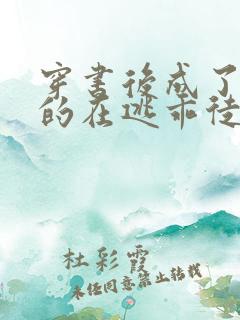 穿书后成了
的在逃乖徒
杜彩霞
未经同意禁止转载